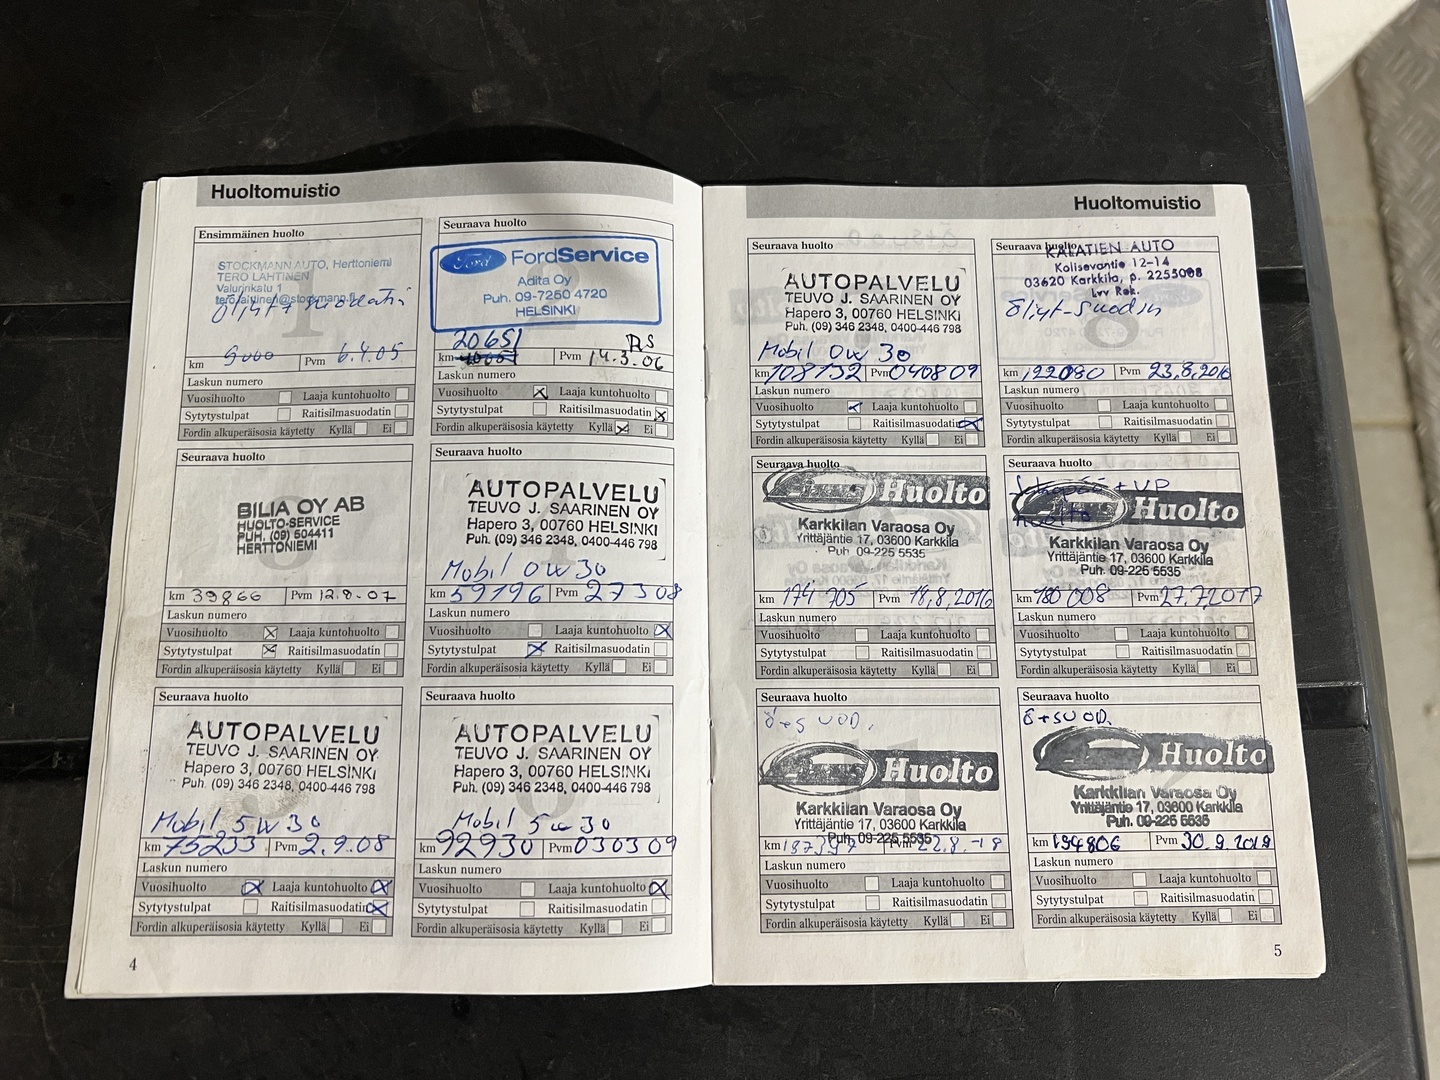 Huoltomuistio
Ensimmäinen huolto
STOCKMANN AUTO, Herttoniemi
TERO LAHTINEN
Valurinkatu 1
tero.lahtinen@stockmann.fi
Öljyt + suodatin
km 9000 Pvm 6.4.05
Laskun numero
Vuosihuolto Laaja kuntohuolto
Sytytystulpat Raitisilmasuodatin
Fordin alkuperäisosia käytetty Kyllä Ei
Seuraava huolto
Ford FordService
Adita Oy
Puh. 09-7250 4720
HELSINKI
20651 RS
km Pvm 14.3.06
Laskun numero
Vuosihuolto Laaja kuntohuolto
Sytytystulpat Raitisilmasuodatin
Fordin alkuperäisosia käytetty Kyllä Ei
Seuraava huolto
BILIA OY AB
HUOLTO-SERVICE
PUH. (09) 504411
HERTTONIEMI
km 39866 Pvm 12.9.07
Laskun numero
Vuosihuolto Laaja kuntohuolto
Sytytystulpat Raitisilmasuodatin
Fordin alkuperäisosia käytetty Kyllä Ei
Seuraava huolto
AUTOPALVELU
TEUVO J. SAARINEN OY
Hapero 3, 00760 HELSINKI
Puh. (09) 346 2348, 0400-446 798
Mobil 0w30
km 59196 Pvm 27308
Laskun numero
Vuosihuolto Laaja kuntohuolto
Sytytystulpat Raitisilmasuodatin
Fordin alkuperäisosia käytetty Kyllä Ei
Seuraava huolto
AUTOPALVELU
TEUVO J. SAARINEN OY
Hapero 3, 00760 HELSINKI
Puh. (09) 346 2348, 0400-446 798
Mobil 5w30
km 75233 Pvm 2.9.08
Laskun numero
Vuosihuolto Laaja kuntohuolto
Sytytystulpat Raitisilmasuodatin
Fordin alkuperäisosia käytetty Kyllä Ei
Seuraava huolto
AUTOPALVELU
TEUVO J. SAARINEN OY
Hapero 3, 00760 HELSINKI
Puh. (09) 346 2348, 0400-446 798
Mobil 5w30
km 92930 Pvm 030309
Laskun numero
Vuosihuolto Laaja kuntohuolto
Sytytystulpat Raitisilmasuodatin
Fordin alkuperäisosia käytetty Kyllä Ei
4
Huoltomuistio
Seuraava huolto
AUTOPALVELU
TEUVO J. SAARINEN OY
Hapero 3, 00760 HELSINKI
Puh. (09) 346 2348, 0400-446 798
Mobil 0w30
km 108132 Pvm 040809
Laskun numero
Vuosihuolto Laaja kuntohuolto
Sytytystulpat Raitisilmasuodatin
Fordin alkuperäisosia käytetty Kyllä Ei
Seuraava huolto
KALATIEN AUTO
Kolisevantie 12-14
03620 Karkkila, p. 2255008
Lvv Rek.
Öljyt-suodin
km 122090 Pvm 23.8.2010
Laskun numero
Vuosihuolto Laaja kuntohuolto
Sytytystulpat Raitisilmasuodatin
Fordin alkuperäisosia käytetty Kyllä Ei
Seuraava huolto
Huolto
Karkkilan Varaosa Oy
Yrittäjäntie 17, 03600 Karkkila
Puh. 09-225 5535
km 174 705 Pvm 18,8,2016
Laskun numero
Vuosihuolto Laaja kuntohuolto
Sytytystulpat Raitisilmasuodatin
Fordin alkuperäisosia käytetty Kyllä Ei
Seuraava huolto
+ VP
Huolto
Huolto
Karkkilan Varaosa Oy
Yrittäjäntie 17, 03600 Karkkila
Puh. 09-225 5535
km 180 008 Pvm 27.7.2017
Laskun numero
Vuosihuolto Laaja kuntohuolto
Sytytystulpat Raitisilmasuodatin
Fordin alkuperäisosia käytetty Kyllä Ei
Seuraava huolto
Ö+SUOD.
Huolto
Karkkilan Varaosa Oy
Yrittäjäntie 17, 03600 Karkkila
Puh. 09-225 5535
km Pvm 22.8.-18
Laskun numero
Vuosihuolto Laaja kuntohuolto
Sytytystulpat Raitisilmasuodatin
Fordin alkuperäisosia käytetty Kyllä Ei
Seuraava huolto
Ö+SUOD.
Huolto
Karkkilan Varaosa Oy
Yrittäjäntie 17, 03600 Karkkila
Puh. 09-225 5535
km 194806 Pvm 30.9.2019
Laskun numero
Vuosihuolto Laaja kuntohuolto
Sytytystulpat Raitisilmasuodatin
Fordin alkuperäisosia käytetty Kyllä Ei
5